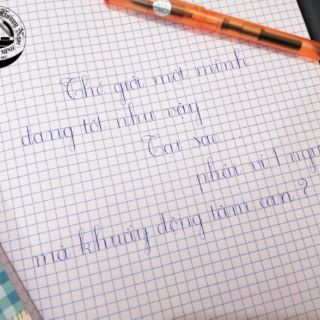 Thế giới một mình
đang tốt như vậy
Tại sao...
phải vì 1 ngư
mà khuấy động tâm can?